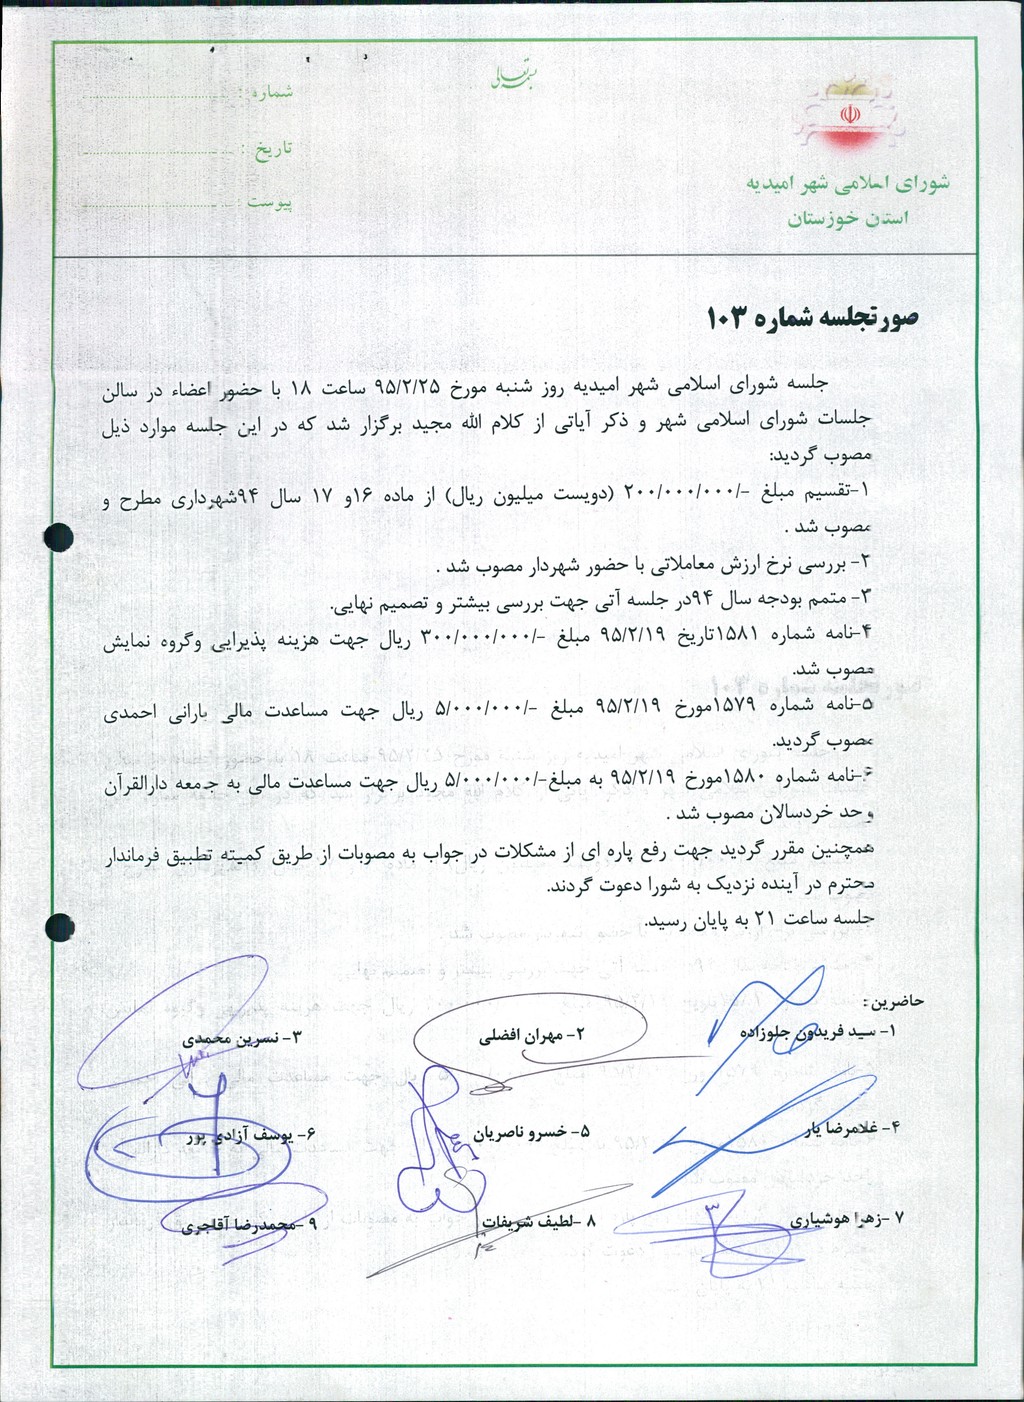 بسمه تعالی
شورای اسلامی شهر امیدیه
استان خوزستان
شماره :
تاریخ :
پیوست :
صورتجلسه شماره ۱۰۳
جلسه شورای اسلامی شهر امیدیه روز شنبه مورخ ۹۵/۲/۲۵ ساعت ۱۸ با حضور اعضاء در سالن
جلسات شورای اسلامی شهر و ذکر آیاتی از کلام الله مجید برگزار شد که در این جلسه موارد ذیل
مصوب گردید:
۱-تقسیم مبلغ -/۲۰۰/۰۰۰/۰۰۰ (دویست میلیون ریال) از ماده ۱۶و ۱۷ سال ۹۴شهرداری مطرح و
مصوب شد .
۲- بررسی نرخ ارزش معاملاتی با حضور شهردار مصوب شد .
۳- متمم بودجه سال ۹۴در جلسه آتی جهت بررسی بیشتر و تصمیم نهایی.
۴-نامه شماره ۱۵۸۱تاریخ ۹۵/۲/۱۹ مبلغ -/۳۰۰/۰۰۰/۰۰۰ ریال جهت هزینه پذیرایی وگروه نمایش
مصوب شد.
۵-نامه شماره ۱۵۷۹مورخ ۹۵/۲/۱۹ مبلغ -/۵/۰۰۰/۰۰۰ ریال جهت مساعدت مالی بارانی احمدی
مصوب گردید.
۶-نامه شماره ۱۵۸۰مورخ ۹۵/۲/۱۹ به مبلغ-/۵/۰۰۰/۰۰۰ ریال جهت مساعدت مالی به جامعه دارالقرآن
واحد خردسالان مصوب شد .
همچنین مقرر گردید جهت رفع پاره ای از مشکلات در جواب به مصوبات از طریق کمیته تطبیق فرماندار
محترم در آینده نزدیک به شورا دعوت گردند.
جلسه ساعت ۲۱ به پایان رسید.
حاضرین :
۱- سید فریدون جلوزاده ۲- مهران افضلی ۳- نسرین محمدی
۴- غلامرضا یار ۵- خسرو ناصریان ۶- یوسف آزادی پور
۷ -زهرا هوشیاری ۸ -لطیف شریفات ۹ -محمدرضا آقاجری